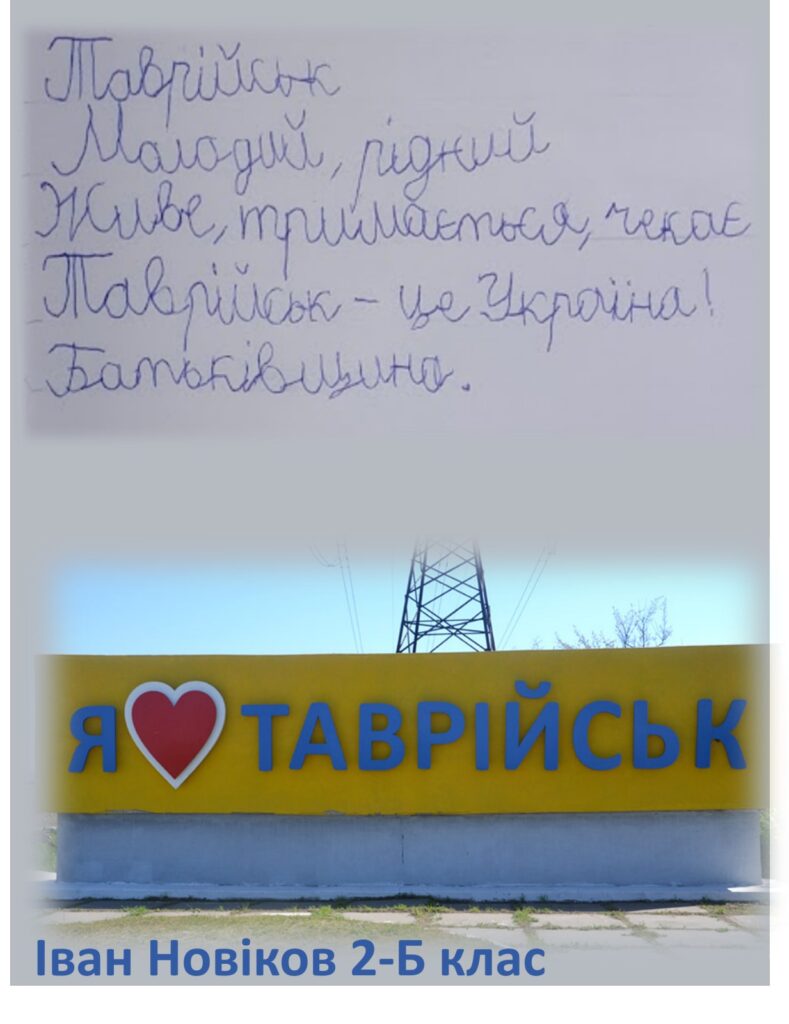 Таврійськ
Молодий, рідний
Живе, тримається, чекає
Таврійськ - це Україна!
Батьківщина.
Я ТАВРІЙСЬК
Іван Новіков 2-Б клас